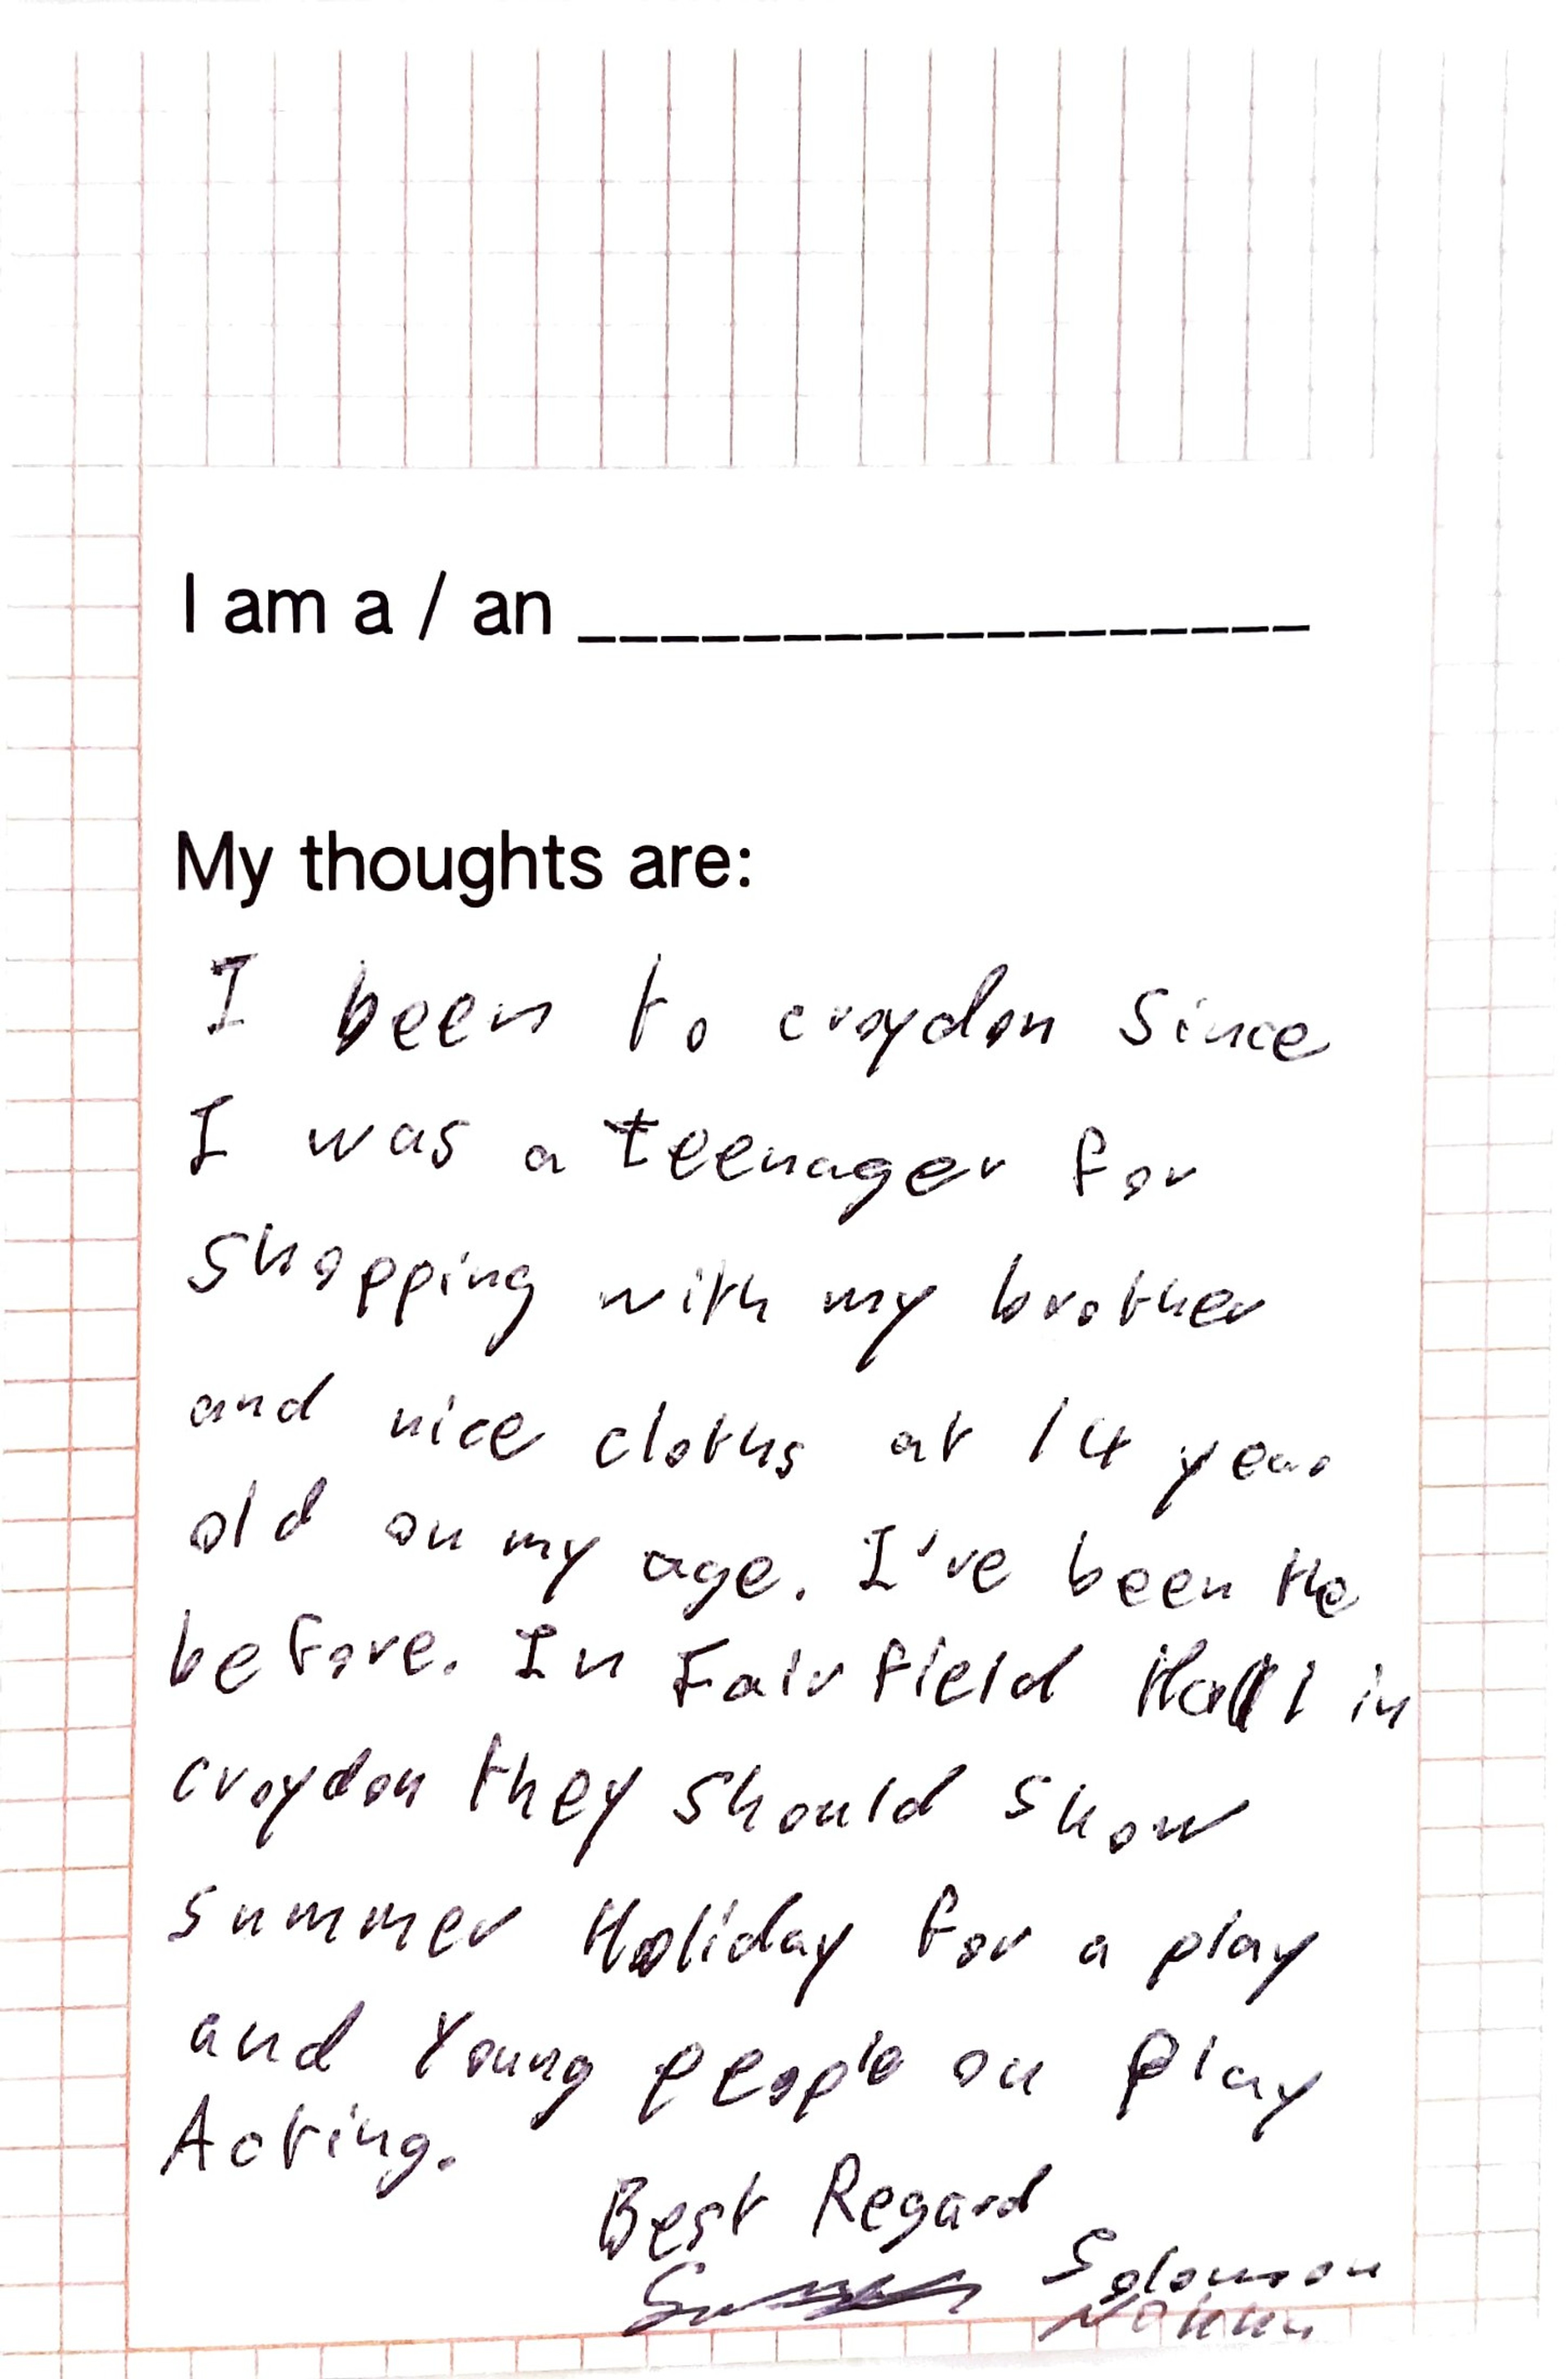 I am a / an __________________
My thoughts are:
I been to croydon since
I was a teenager for
shopping with my brother
and nice cloths at 14 year
old on my age. I've been the
before. In Fairfield Hall in
croydon they should show
summer Holiday for a play
and Young people on play
Acting.
Best Regard
Solomon